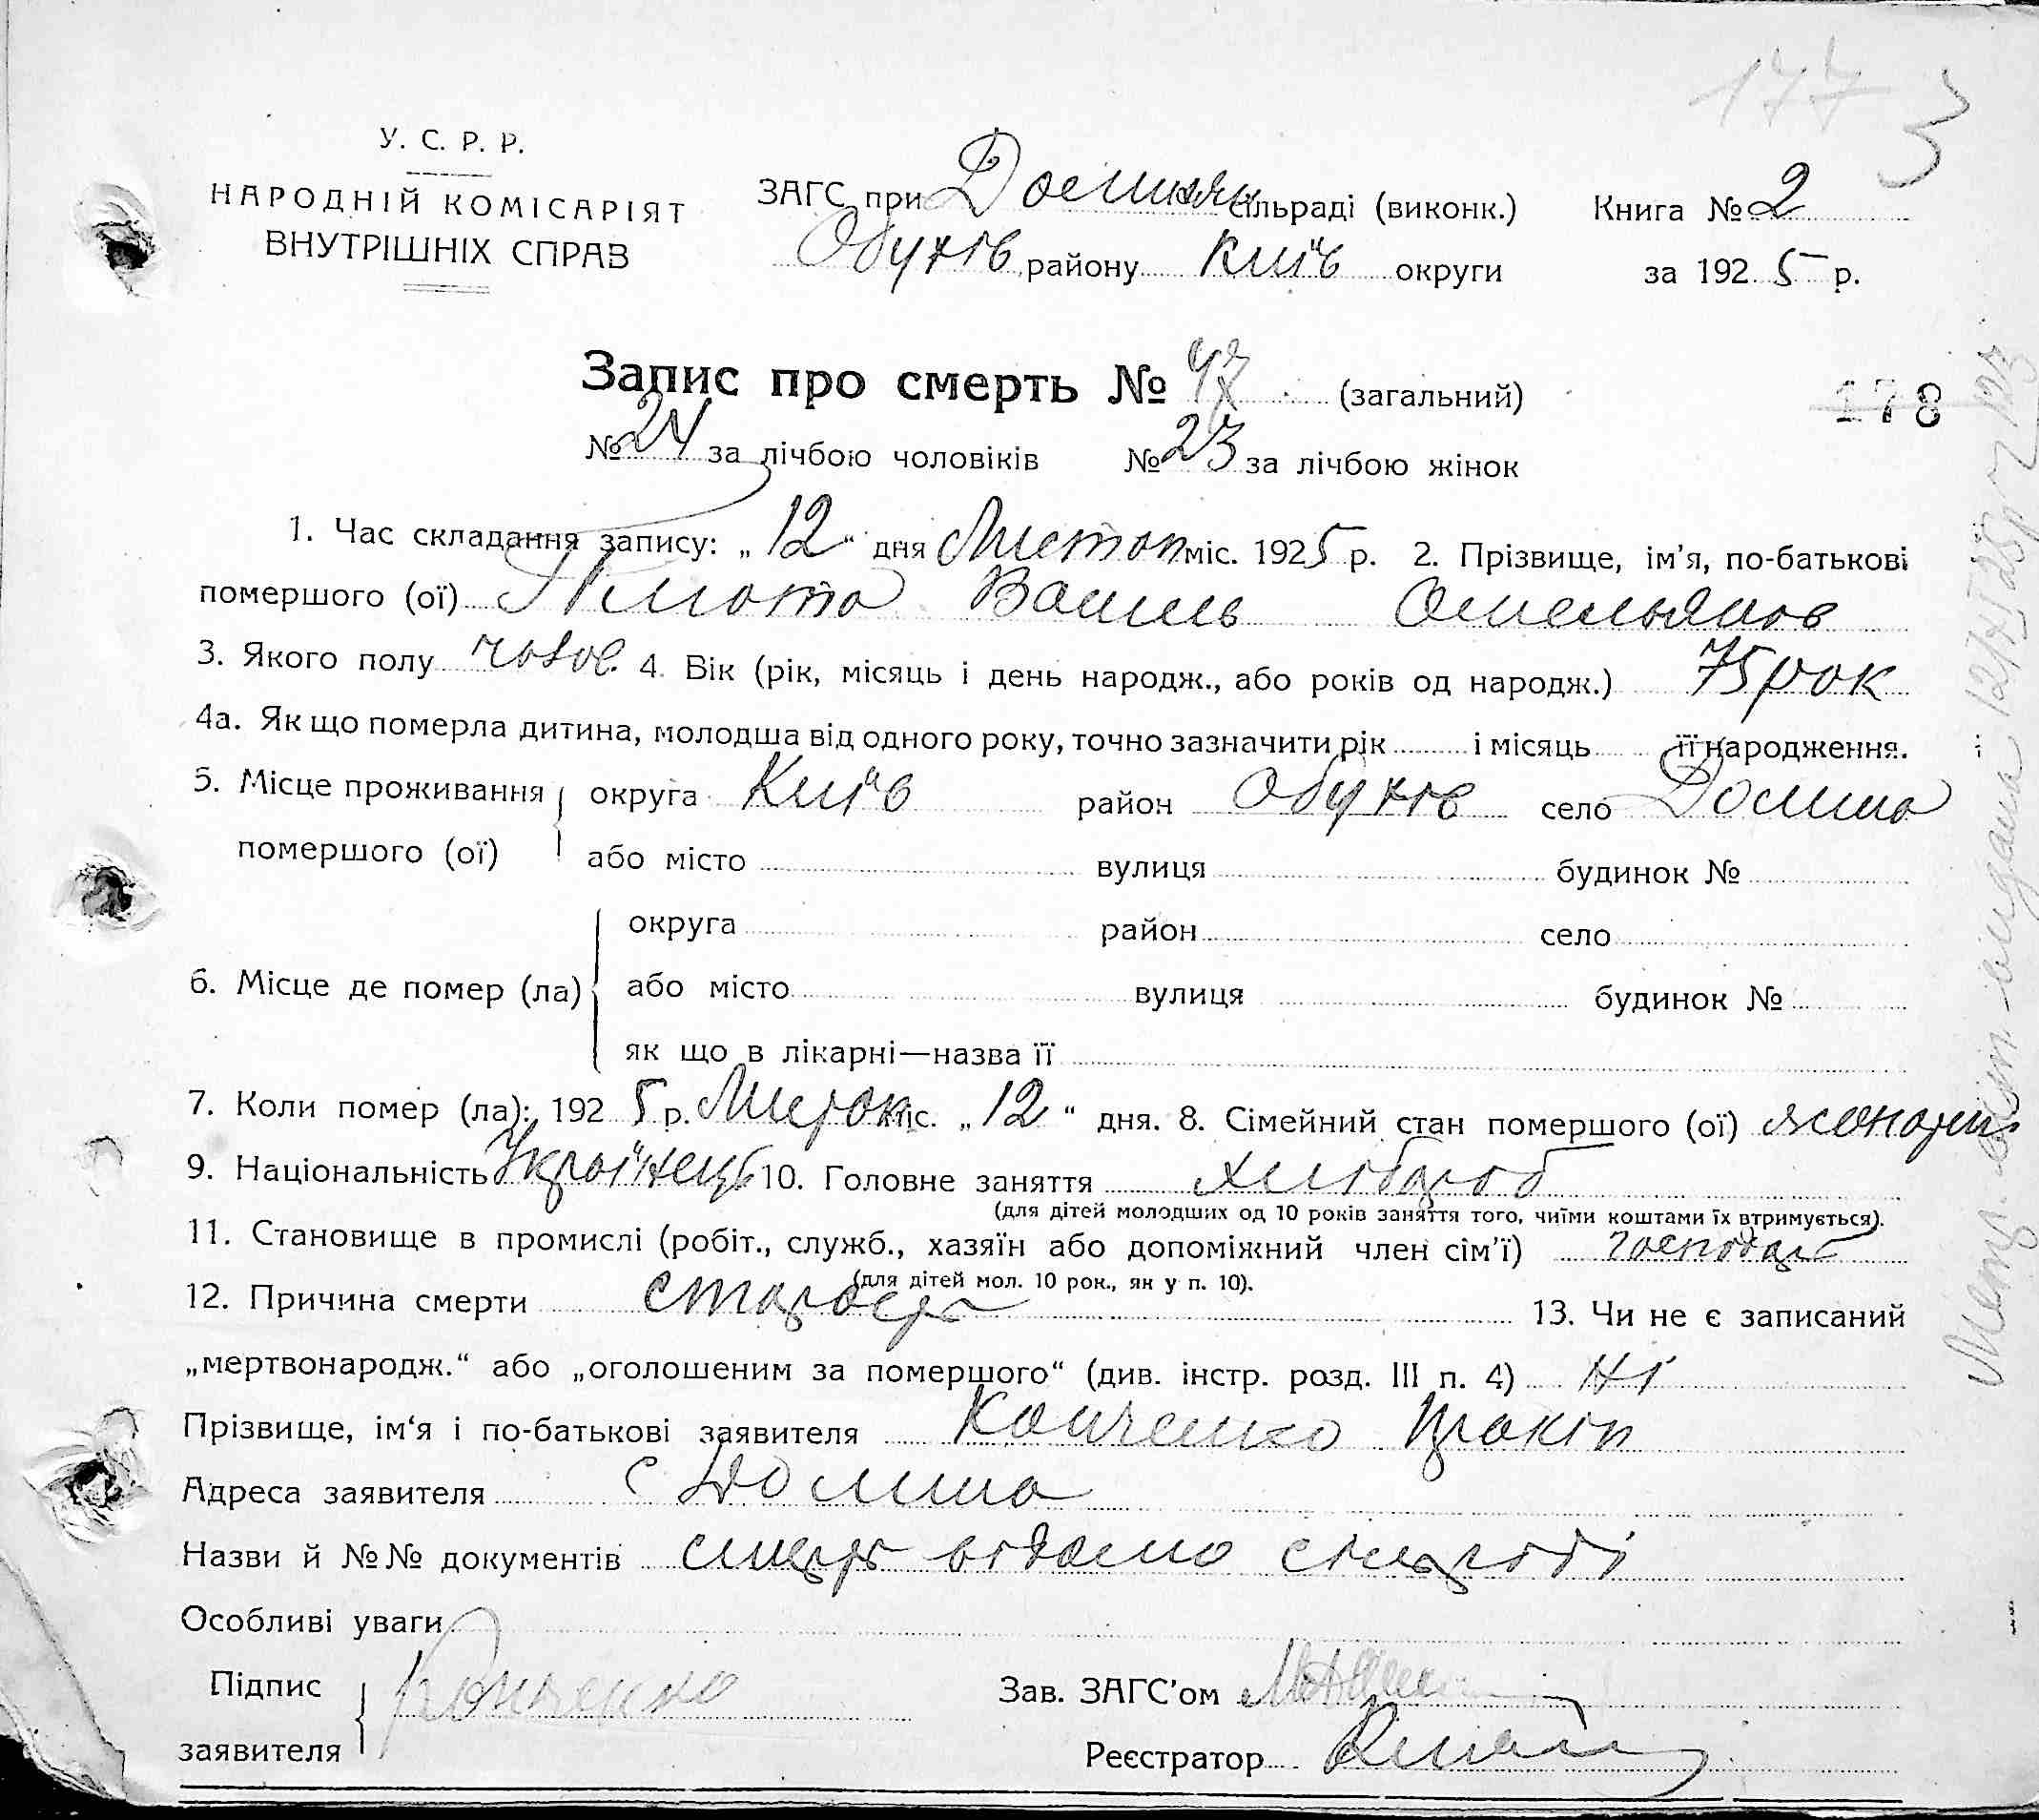 177 3
У. С. Р. Р.
НАРОДНІЙ КОМІСАРІЯТ
ВНУТРІШНІХ СПРАВ
ЗАГС при сільраді (виконк.)
Обухів району Київ округи
Книга № 2
за 1925 р.
Запис про смерть № 47 (загальний)
178
№ 24 за лічбою чоловіків № 23 за лічбою жінок
1. Час складання запису: „12“ дня Листоп міс. 1925 р. 2. Прізвище, ім’я, по-батькові
помершого (ої) Василь Омельянов
3. Якого полу чолов. 4. Вік (рік, місяць і день народж., або років од народж.) 75 рок
4а. Як що померла дитина, молодша від одного року, точно зазначити рік і місяць її народження.
5. Місце проживання помершого (ої) округа Київ район Обухів село Долина
або місто вулиця будинок №
6. Місце де помер (ла) округа район село
або місто вулиця будинок №
як що в лікарні—назва її
7. Коли помер (ла): 1925 р. Листоп міс. „12“ дня. 8. Сімейний стан помершого (ої) жонатий
9. Національність Українець 10. Головне заняття хлібороб
(для дітей молодших од 10 років заняття того, чиїми коштами їх втримується).
11. Становище в промислі (робіт., служб., хазяїн або допоміжний член сім’ї) господар
(для дітей мол. 10 рок., як у п. 10).
12. Причина смерти старость 13. Чи не є записаний
„мертвонародж.“ або „оголошеним за помершого“ (див. інстр. розд. III п. 4) Ні
Прізвище, ім‘я і по-батькові заявителя Прокіп
Адреса заявителя с Долина
Назви й №№ документів смерть відомо сільраді
Особливі уваги
Підпис заявителя
Зав. ЗАГС’ом
Реєстратор